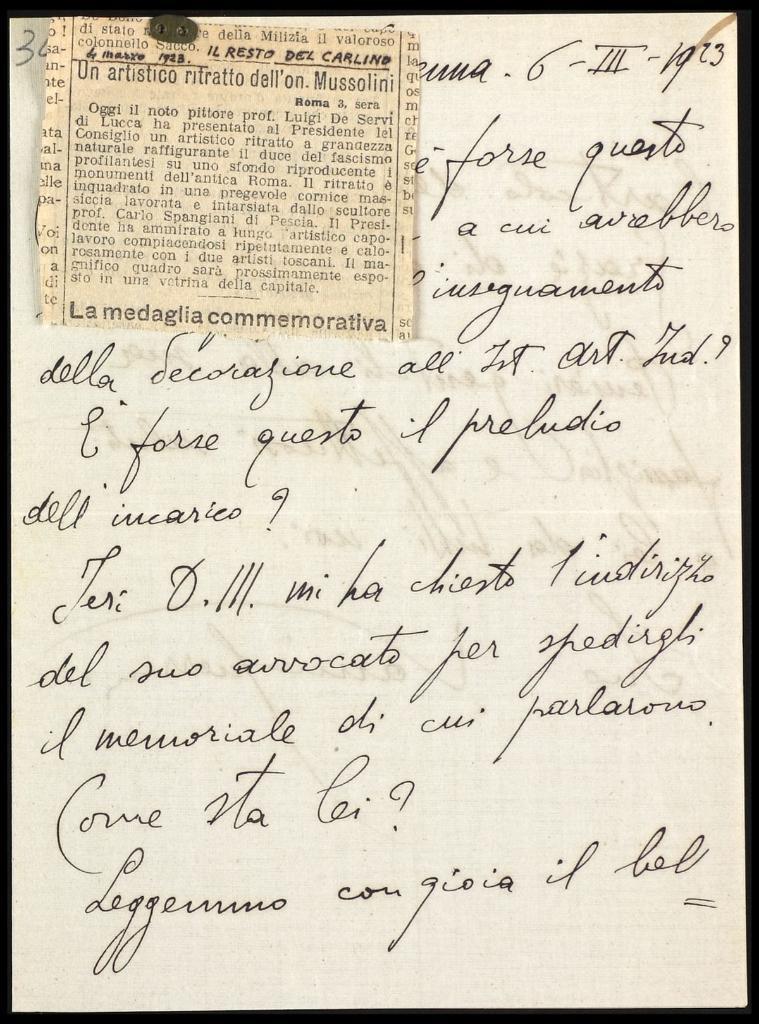 di stato
della Milizia il valoroso
colonnello Sacco.
4 marzo 1923. IL RESTO DEL CARLINO
Un artistico ritratto dell'on. Mussolini
Roma 3, sera
Oggi il noto pittore prof. Luigi De Servi
di Lucca ha presentato al Presidente lel
Consiglio un artistico ritratto a grandezza
naturale raffigurante il duce del fascismo
profilantesi su uno sfondo riproducente i
monumenti dell'antica Roma. Il ritratto è
inquadrato in una pregevole cornice mas-
siccia lavorata e intarsiata dallo scultore
prof. Carlo Spangiani di Pescia. Il Presi-
dente ha ammirato a lungo l'artistico capo-
lavoro compiacendosi ripetutamente e calo-
rosamente con i due artisti toscani. Il ma-
gnifico quadro sarà prossimamente espo-
sto in una vetrina della capitale.
La medaglia commemorativa
6-III-1923
è forse questo
a cui avrebbero
l'insegnamento
della decorazione all' Ist. Art. Ind.?
È forse questo il preludio
dell'incarico?
Jeri D.M. mi ha chiesto l'indirizzo
del suo avvocato per spedirgli
il memoriale di cui parlarono.
Come sta Lei?
Leggemmo con gioia il bel
=